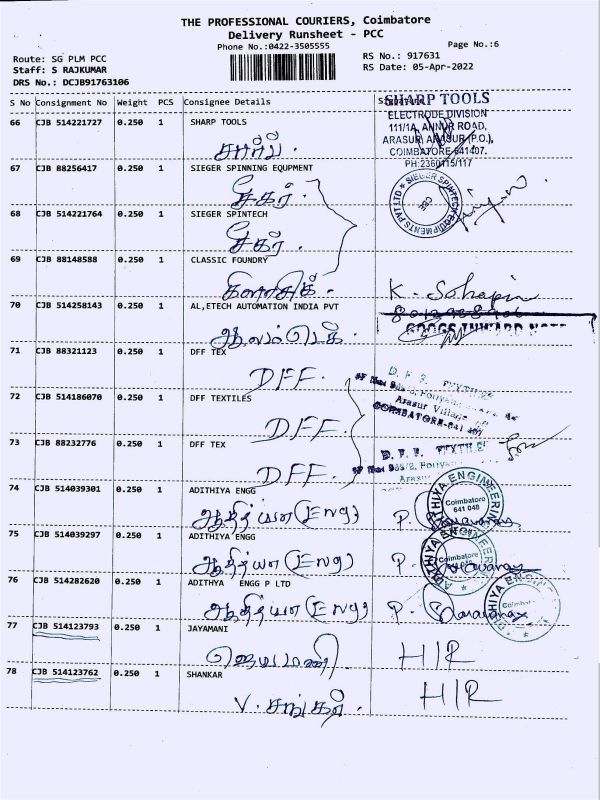 THE PROFESSIONAL COURIERS, Coimbatore
Delivery Runsheet - PCC
Phone No.:0422-3505555
Page No.:6
Route: SG PLM PCC
Staff: S RAJKUMAR
DRS No.: DCJB91763106
RS No.: 917631
RS Date: 05-Apr-2022
S No Consignment No Weight PCS Consignee Details
66 CJB 514221727 0.250 1 SHARP TOOLS
சார்ப்
SHARP TOOLS
ELECTRODE DIVISION
111/1A, ANNUR ROAD,
ARASUR, ARASUR (P.O.),
COIMBATORE-641407.
PH:2360115/117
67 CJB 88256417 0.250 1 SIEGER SPINNING EQUPMENT
சீகர்.
SIEGER SPINTECH EQUIPMENTS PVT LTD
CBE
68 CJB 514221764 0.250 1 SIEGER SPINTECH
சீகர்.
69 CJB 88148588 0.250 1 CLASSIC FOUNDRY
கிளாசிக்.
K.
70 CJB 514258143 0.250 1 AL,ETECH AUTOMATION INDIA PVT
GOODS INWARD NOTE
71 CJB 88321123 0.250 1 DFF TEX
DFF.
72 CJB 514186070 0.250 1 DFF TEXTILES
DFF.
Arasur Village
COIMBATORE-641 407
73 CJB 88232776 0.250 1 DFF TEX
DFF.
74 CJB 514039301 0.250 1 ADITHIYA ENGG
ஆதித்யா (Eng)
P.
ADITHIYA ENGINEERING
Coimbatore
641 048
75 CJB 514039297 0.250 1 ADITHIYA ENGG
ஆதித்யா (Eng)
P.
Coimbatore
76 CJB 514282620 0.250 1 ADITHYA ENGG P LTD
ஆதித்யா (Eng)
P.
77 CJB 514123793 0.250 1 JAYAMANI
ஜெயமணி
H/R
78 CJB 514123762 0.250 1 SHANKAR
V. சங்கர்.
H/R